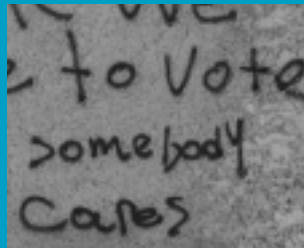 we
to vote
somebody
cares